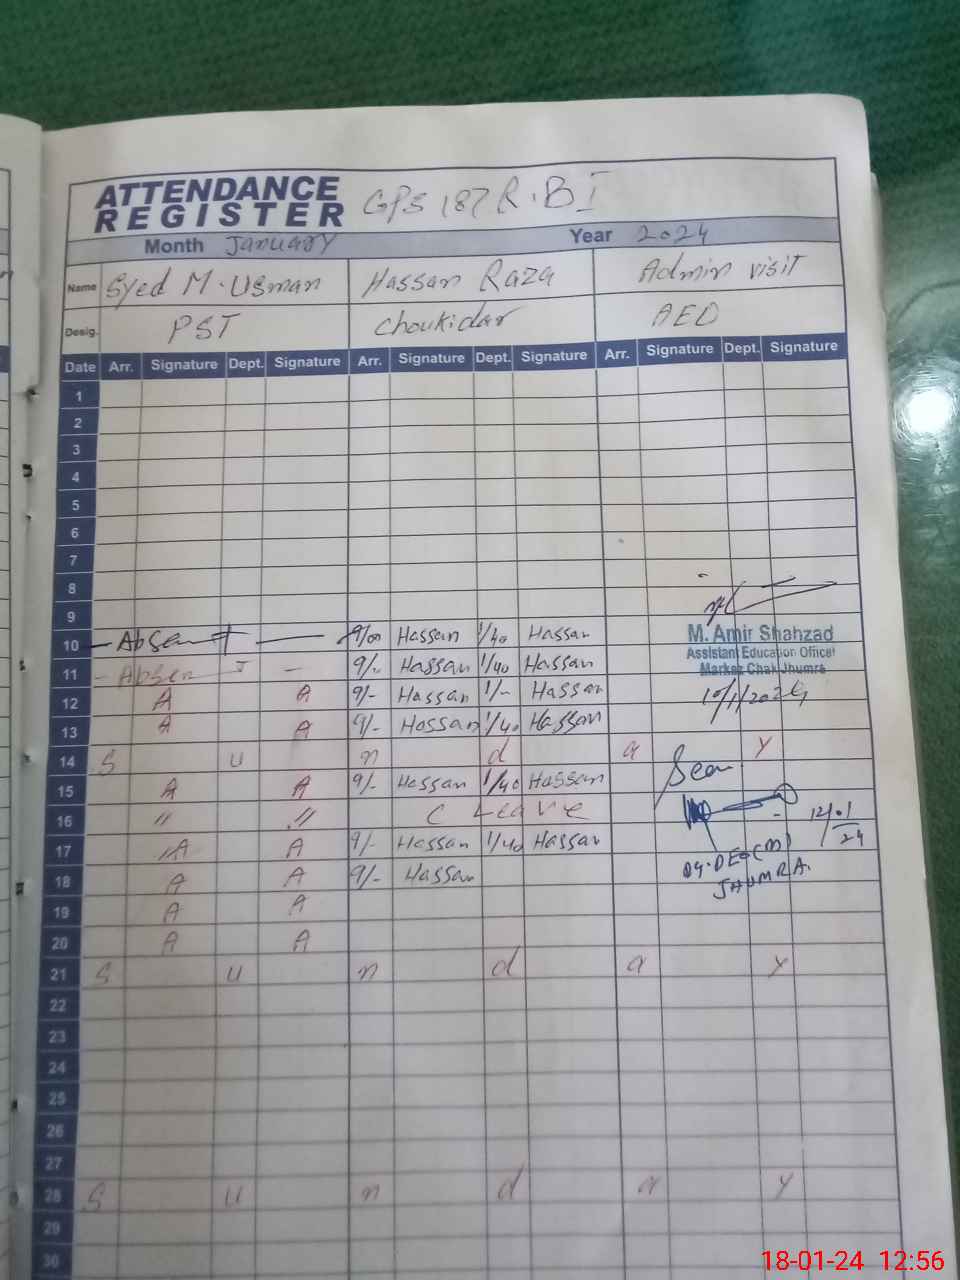 ATTENDANCE REGISTER GPS 187 R.B I
Month January Year 2024
Name Syed M. Usman Hassan Raza Admin visit
Desig. PST Choukidar AEO
Date Arr. Signature Dept. Signature Arr. Signature Dept. Signature Arr. Signature Dept. Signature
1
2
3
4
5
6
7
8
9
10 — Absent — 9/00 Hassan 1/40 Hassan
M. Amir Shahzad
Assistant Education Officer
Markaz Chak Jhumra
11 - Absent - 9/- Hassan 1/40 Hassan
12 A A 9/- Hassan 1/- Hassan 10/1/2024
13 A A 9/- Hassan 1/40 Hassan
14 S u n d a y
15 A A 9/- Hassan 1/40 Hassan Seen
16 " " C Leave
12/01/24
17 "A A 9/- Hassan 1/40 Hassan
Dy. DEO (M)
JHUMRA.
18 A A 9/- Hassan
19 A A
20 A A
21 S u n d a y
22
23
24
25
26
27
28 S u n d a y
29
30
18-01-24 12:56